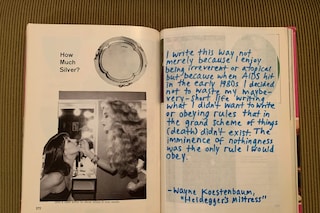 How
Much
Silver?
I write this way not
merely because I enjoy
being irreverent or atopical
but because when AIDS hit
in the early 1980s I decided
not to waste my maybe-
very-short life writing
what I didn't want to write
or obeying rules that in
the grand scheme of things
(death) didn't exist. The
imminence of nothingness
was the only rule I would
obey.
-Wayne Koestenbaum,
"Heidegger's Mistress"